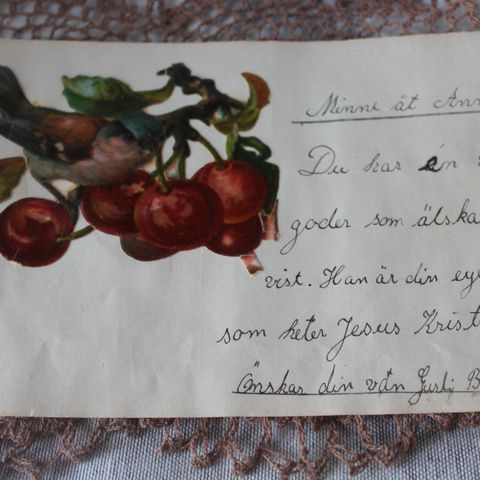 Minne åt Ann
Du har en
goder som älska
vist. Han är din eye
som heter Jesus Krist
Önskar din vän Gurli B